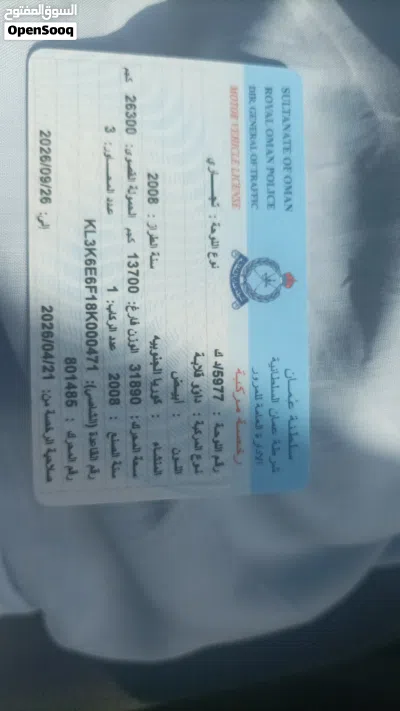 السوق المفتوح
OpenSooq
SULTANATE OF OMAN
ROYAL OMAN POLICE
DIR. GENERAL OF TRAFFIC
MOTOR VEHICLE LICENSE
سلطنة عمان
شرطة عمان السلطانية
الادارة العامة للمرور
رخصة مركبة
رقم اللوحة : 5977/د ك نوع اللوحة : تجاري
نوع المركبة : داؤو قلابة
اللون : ابيض
المنشاء : كوريا الجنوبيه سنة الطراز : 2008
سعة المحرك : 31890 الوزن فارغ: 13700 كجم الحمولة القصوى: 26300 كجم
سنة الصنع : 2008 عدد الركاب: 1 عدد المحاور: 3
رقم القاعدة (الشاصي): KL3K6E6F18K000471
رقم المحرك : 801485
صلاحية الرخصة من: 2026/04/21 إلى: 2026/09/26